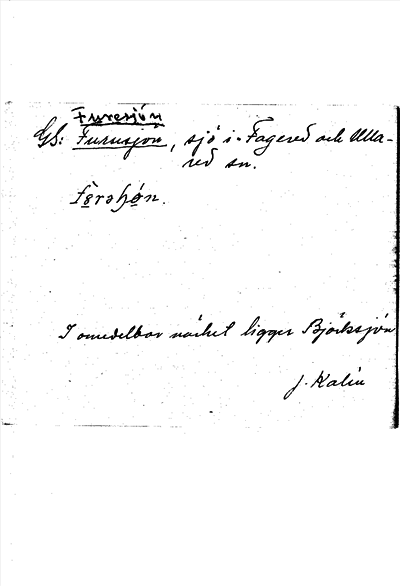 Furesjön
GS: Furusjön, sjö i Fagered och Ulla-
red sn.
I omedelbar närhet ligger Björksjön
J. Kalén